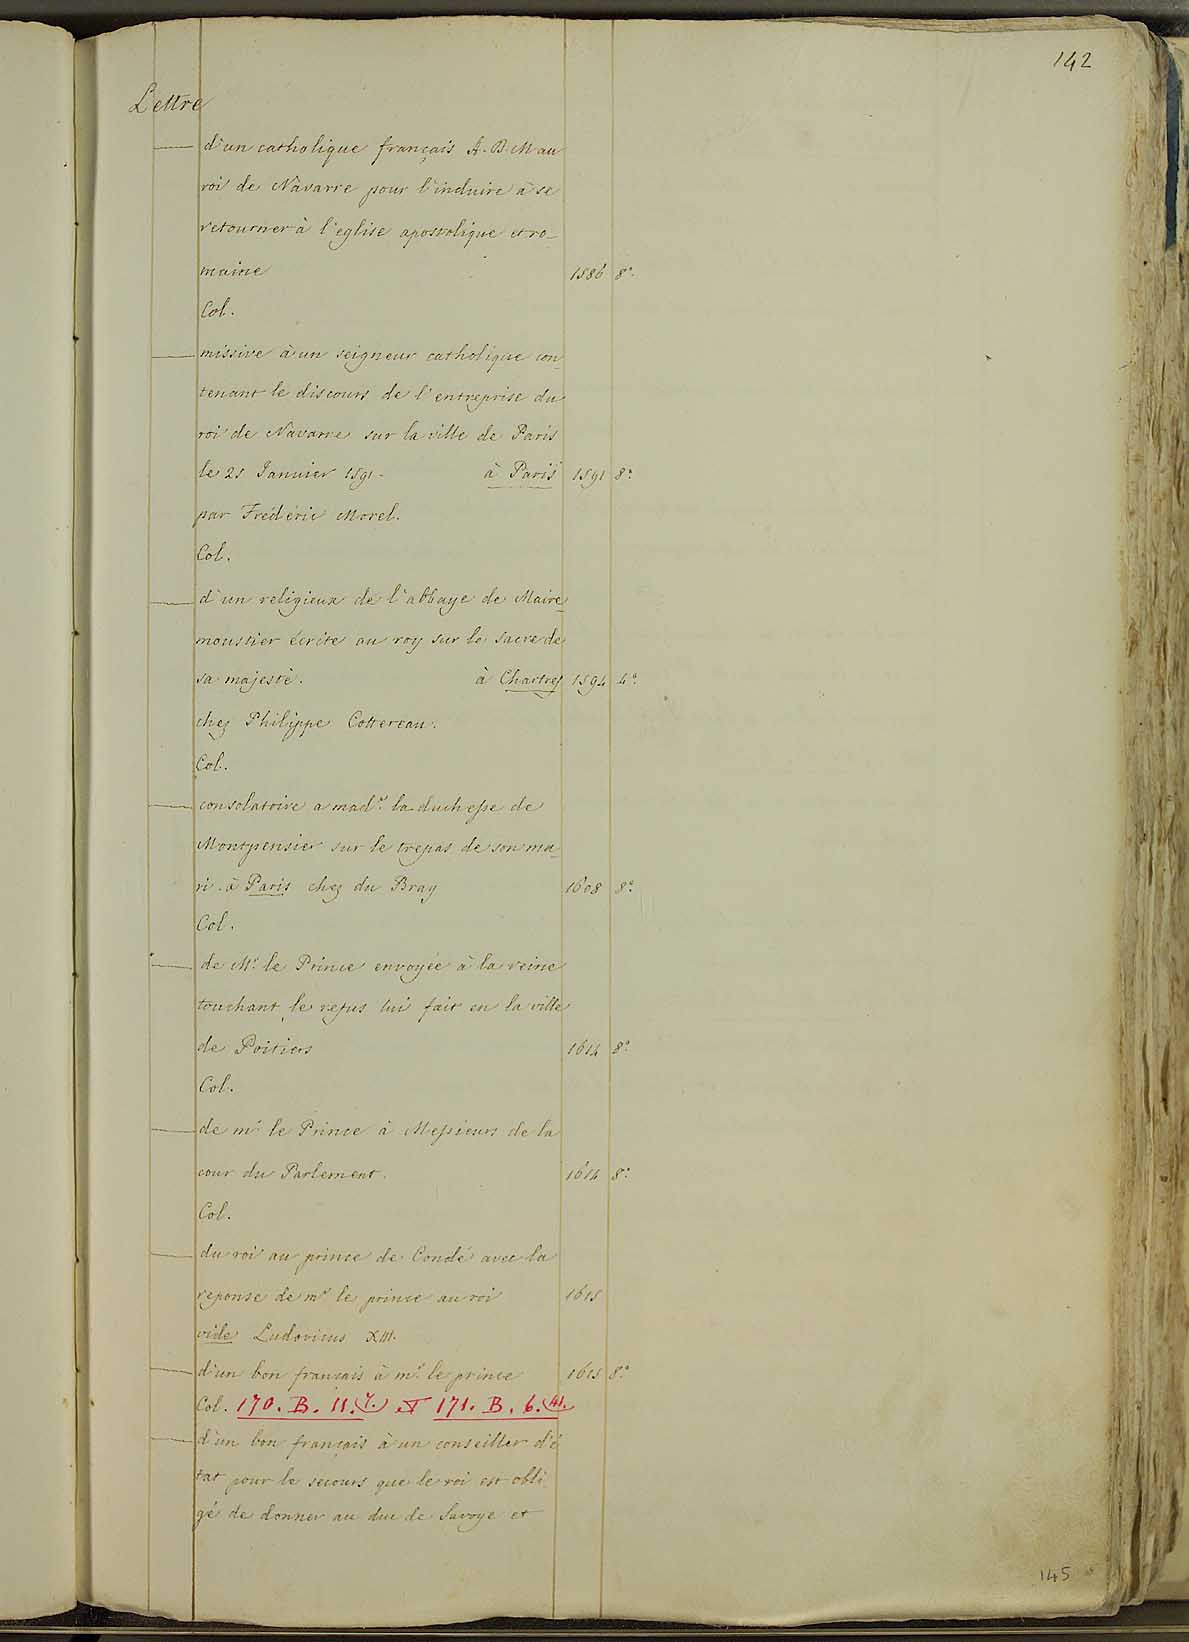 142
Lettre
— d'un catholique français A. B. M au
roi de Navarre pour l'induire à se
retourner à l'eglise apostolique et ro-
maine 1586 8°.
Col.
— missive à un seigneur catholique con-
tenant le discours de l'entreprise du
roi de Navarre sur la ville de Paris
le 21 Janvier 1591 - à Paris 1591 8°.
par Fréderic Morel.
Col.
— d'un religieux de l'abbaye de Maire-
moustier écrite au roy sur le sacre de
sa majesté. à Chartres 1594 4°.
chez Philippe Cottereau.
Col.
— consolatoire a mad.e la duchesse de
Montpensier sur le trepas de son ma-
ri. à Paris chez du Bray 1608 8°.
Col.
— de Mr. le Prince envoyée à la reine
touchant le refus lui fait en la ville
de Poitiers 1614 8°.
Col.
— de mr. le Prince à Messieurs de la
cour du Parlement. 1614 8°.
Col.
— du roi au prince de Condé avec la
reponse de mr. le prince au roi 1615
vide Ludovicus XIII.
— d'un bon francais à mr. le prince 1615 8°.
Col. 170. B. 11. (7.) et 171. B. 6. (41.
— d'un bon français à un conseiller d'é
tat pour le secours que le roi est obli-
gé de donner au duc de Savoye et
145